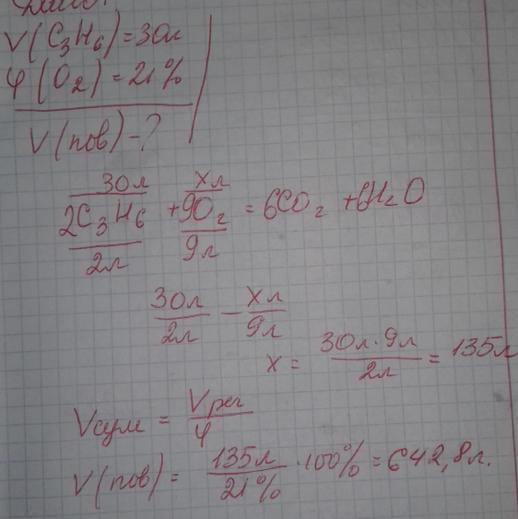 V(C₃H₆)=30л
φ(O₂)=21%
V(пов)-?
30л xл
2C₃H₆ + 9O₂ = 6CO₂ + 6H₂O
2л 9л
30л/2л - xл/9л
x = 30л·9л/2л = 135л
Vсум = Vреч/φ
V(пов) = 135л/21% · 100% = 642,8л.